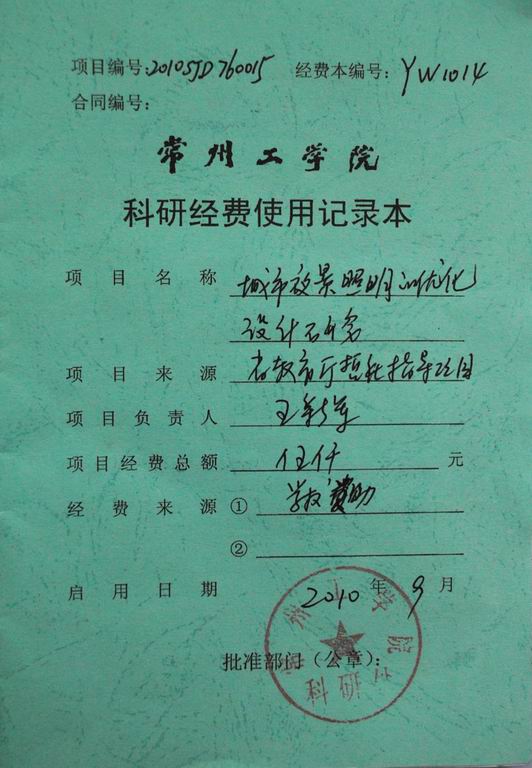 项目编号:2010SJD760015 经费本编号:YW1014
合同编号:
常州工学院
科研经费使用记录本
项目名称 城市夜景照明的优化
设计研究
项目来源 省教育厅哲社指导项目
项目负责人
项目经费总额 伍仟 元
经费来源 ① 学校资助
②
启用日期 2010年9月
批准部门(公章):
常州工学院
科研